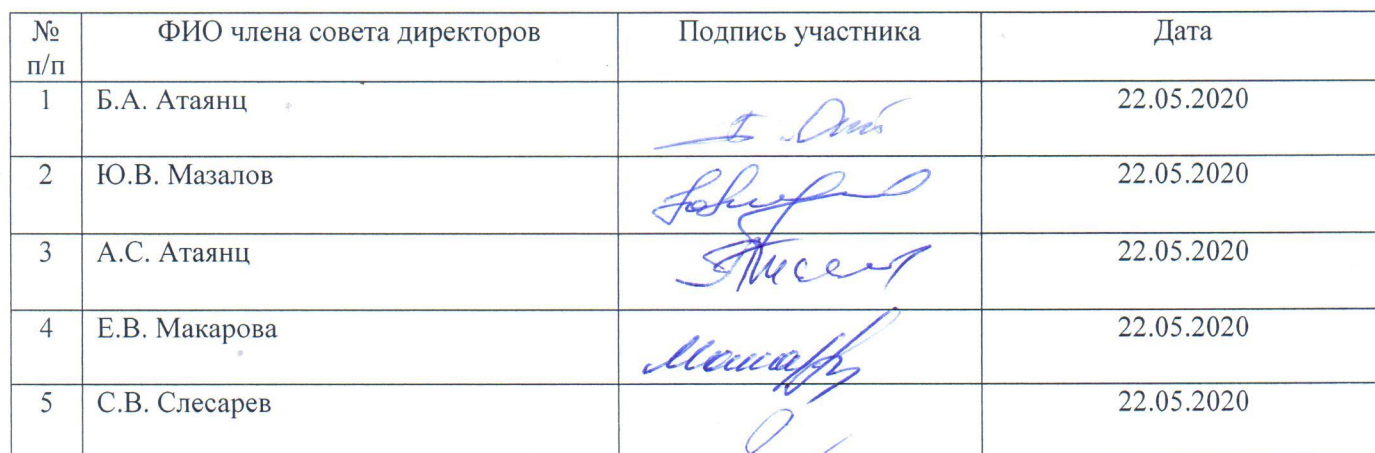 № п/п ФИО члена совета директоров Подпись участника Дата
1 Б.А. Атаянц 22.05.2020
2 Ю.В. Мазалов 22.05.2020
3 А.С. Атаянц 22.05.2020
4 Е.В. Макарова 22.05.2020
5 С.В. Слесарев 22.05.2020